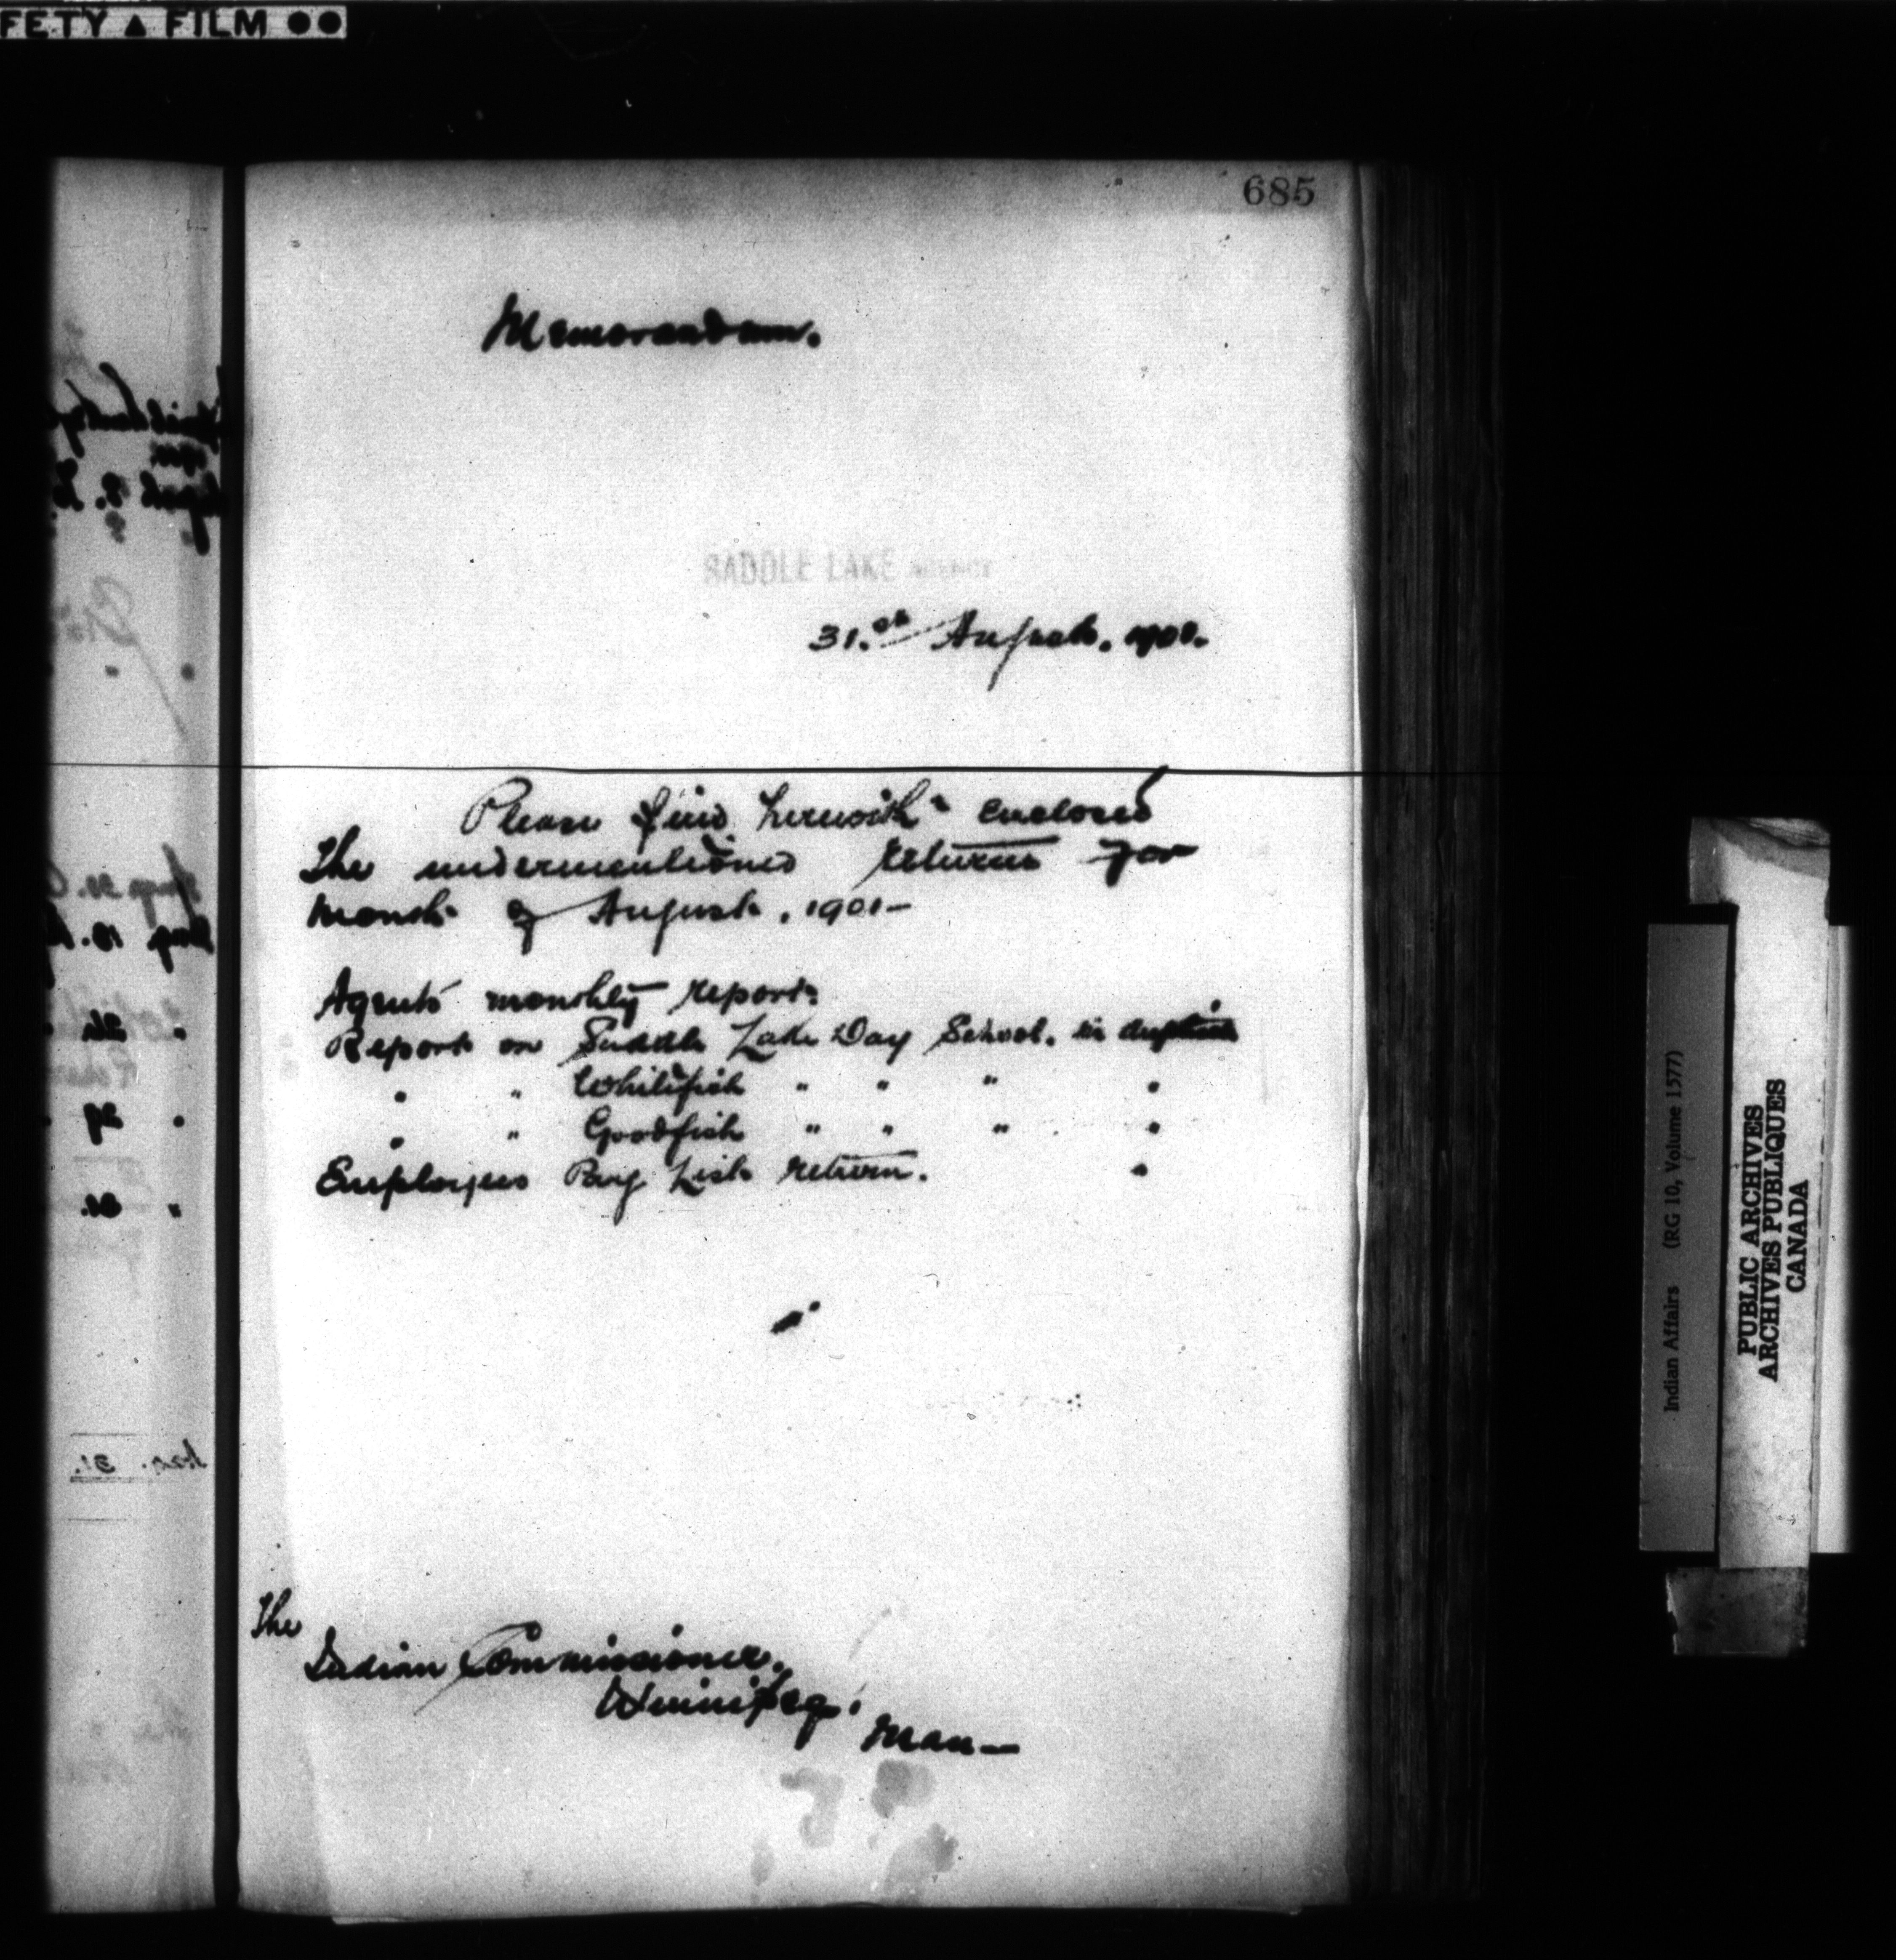 FETY ▲ FILM ●●
685
Memorandum.
SADDLE LAKE AGENCY
31.st August. 1901.
Please find herewith enclosed
the undermentioned returns for
month of August. 1901-
Agents monthly report.
Report on Saddle Lake Day School. in duplicate
" " Whitefish " " " "
" " Goodfish " " " "
Employees Pay List return. "
The
Indian Commissioner.
Winnipeg.
Man-
Indian Affairs (RG 10, Volume 1577)
PUBLIC ARCHIVES
ARCHIVES PUBLIQUES
CANADA